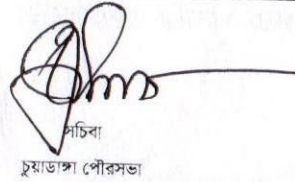 সচিব।
চুয়াডাঙ্গা পৌরসভা